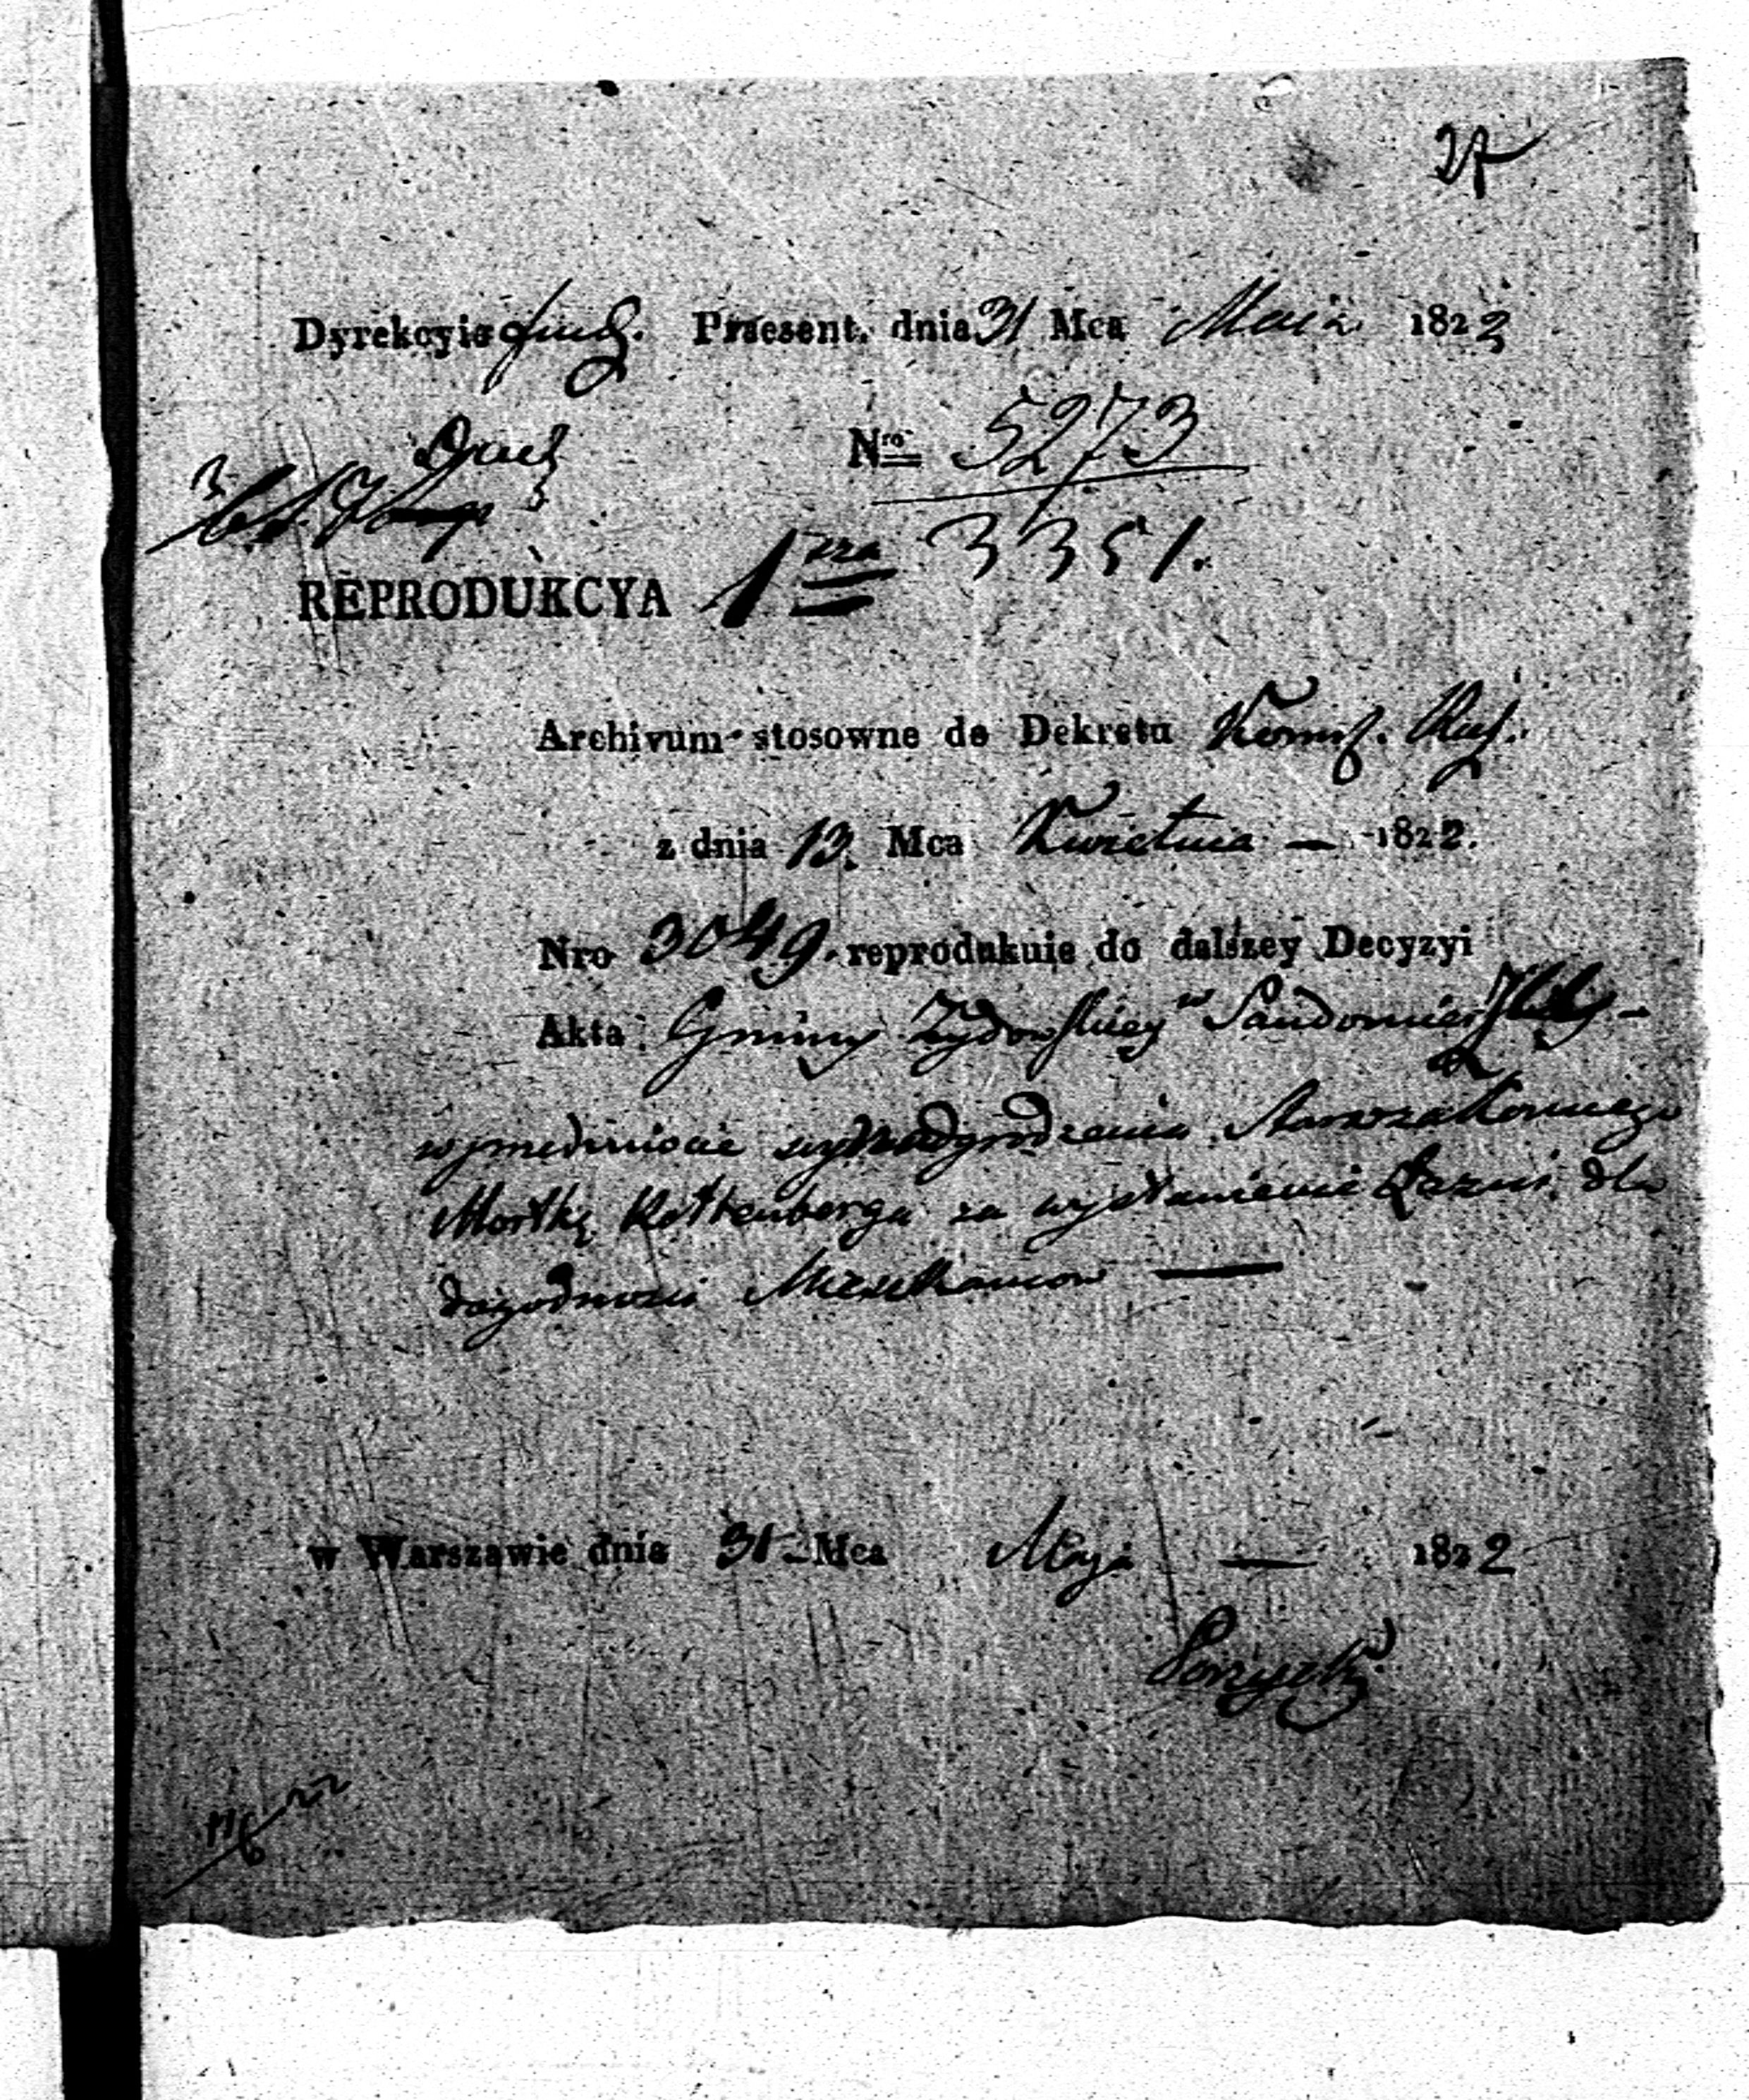 27
Dyrekcyia Praesent. dnia 31 Mca Maia 1822
Nro 5273
3351.
REPRODUKCYA 1sza
Archivum stosowne do Dekretu Komis. Rz.
z dnia 13. Mca Kwietnia — 1822.
Nro 3049. reprodukuie do dalszey Decyzyi
Akta Gminy Żydowskiey w Sandomierz
w przedmiocie wynadgrodzenia Starozakonnego
Mortkę Rottenberga za wystawienie Łazni dla
dogodności Mieszkancow —
w Warszawie dnia 31 - Mca Maja — 1822